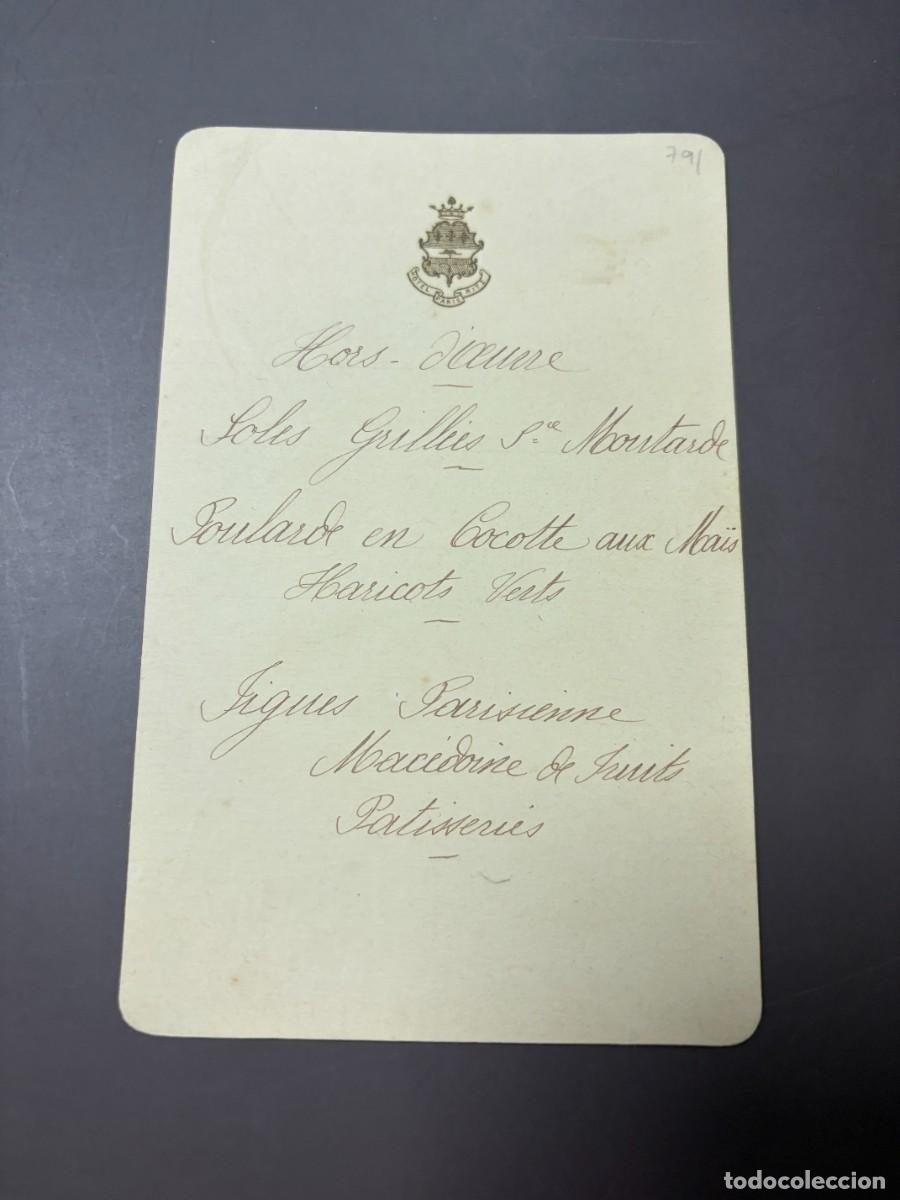 791
HOTEL RITZ
PARIS
Hors-d'œuvre
Soles Grillées S.ce Moutarde
Poularde en Cocotte aux Maïs
Haricots Verts
Figues Parisienne
Macédoine de Fruits
Patisseries
todocoleccion